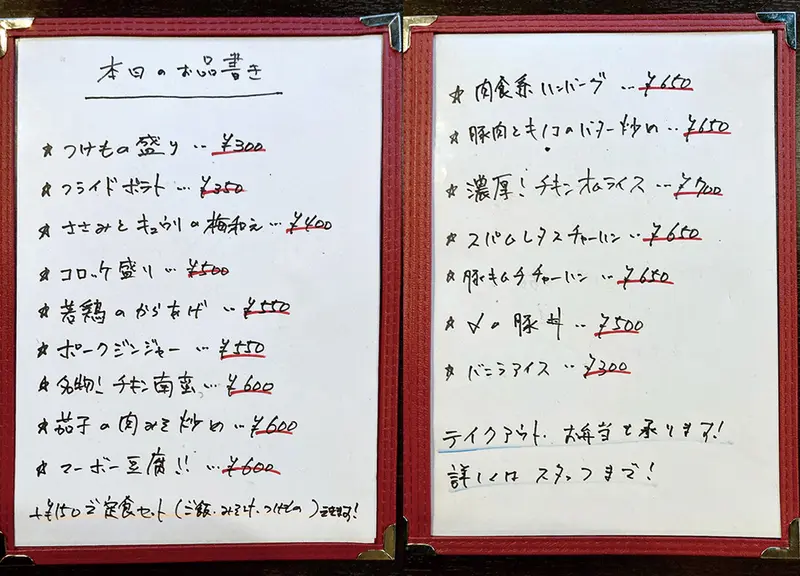 本日のお品書き
☆ つけもの盛り … ¥300
☆ フライドポテト … ¥350
☆ ささみとキュウリの梅和え … ¥400
☆ コロッケ盛り … ¥500
☆ 若鶏のからあげ … ¥550
☆ ポークジンジャー … ¥550
☆ 名物! チキン南蛮 … ¥600
☆ 茄子の肉みそ炒め … ¥600
☆ マーボー豆腐!! … ¥600
+¥150で定食セット(ご飯・みそ汁・つけもの)できます!
☆ 肉食系ハンバーグ … ¥650
☆ 豚肉とキノコのバター炒め … ¥650
☆ 濃厚! チキンオムライス … ¥700
☆ スパムレタスチャーハン … ¥650
☆ 豚キムチチャーハン … ¥650
☆ 〆の豚丼 … ¥500
☆ バニラアイス … ¥300
テイクアウト、お弁当も承ります!
詳しくは スタッフまで!